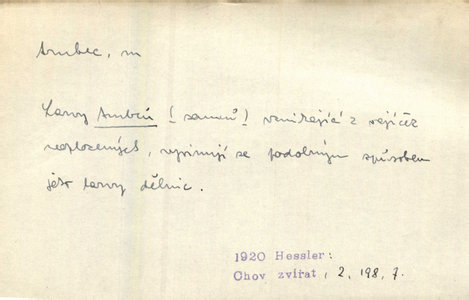 trubec, m
Larvy trubců (samců) vznikající z vajíček
neoplozených, vyvinují se podobným způsobem
jako larvy dělnic.
1920 Hessler:
Chov zvířat, 2, 198, 7.